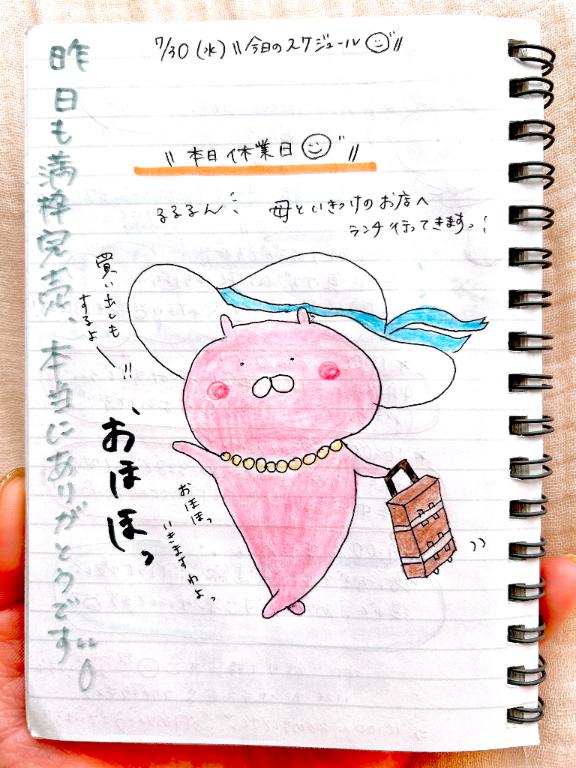 7/30(水)〃今日のスケジュール〃
〃本日休業日〃
るるるん… 母といきつけのお店へ
ランチ行ってきますっ!
昨日も満枠完売、本当にありがとうです!!
買い出しも
するよ
!!
おほほっ
おほほっ
いきますわよっ